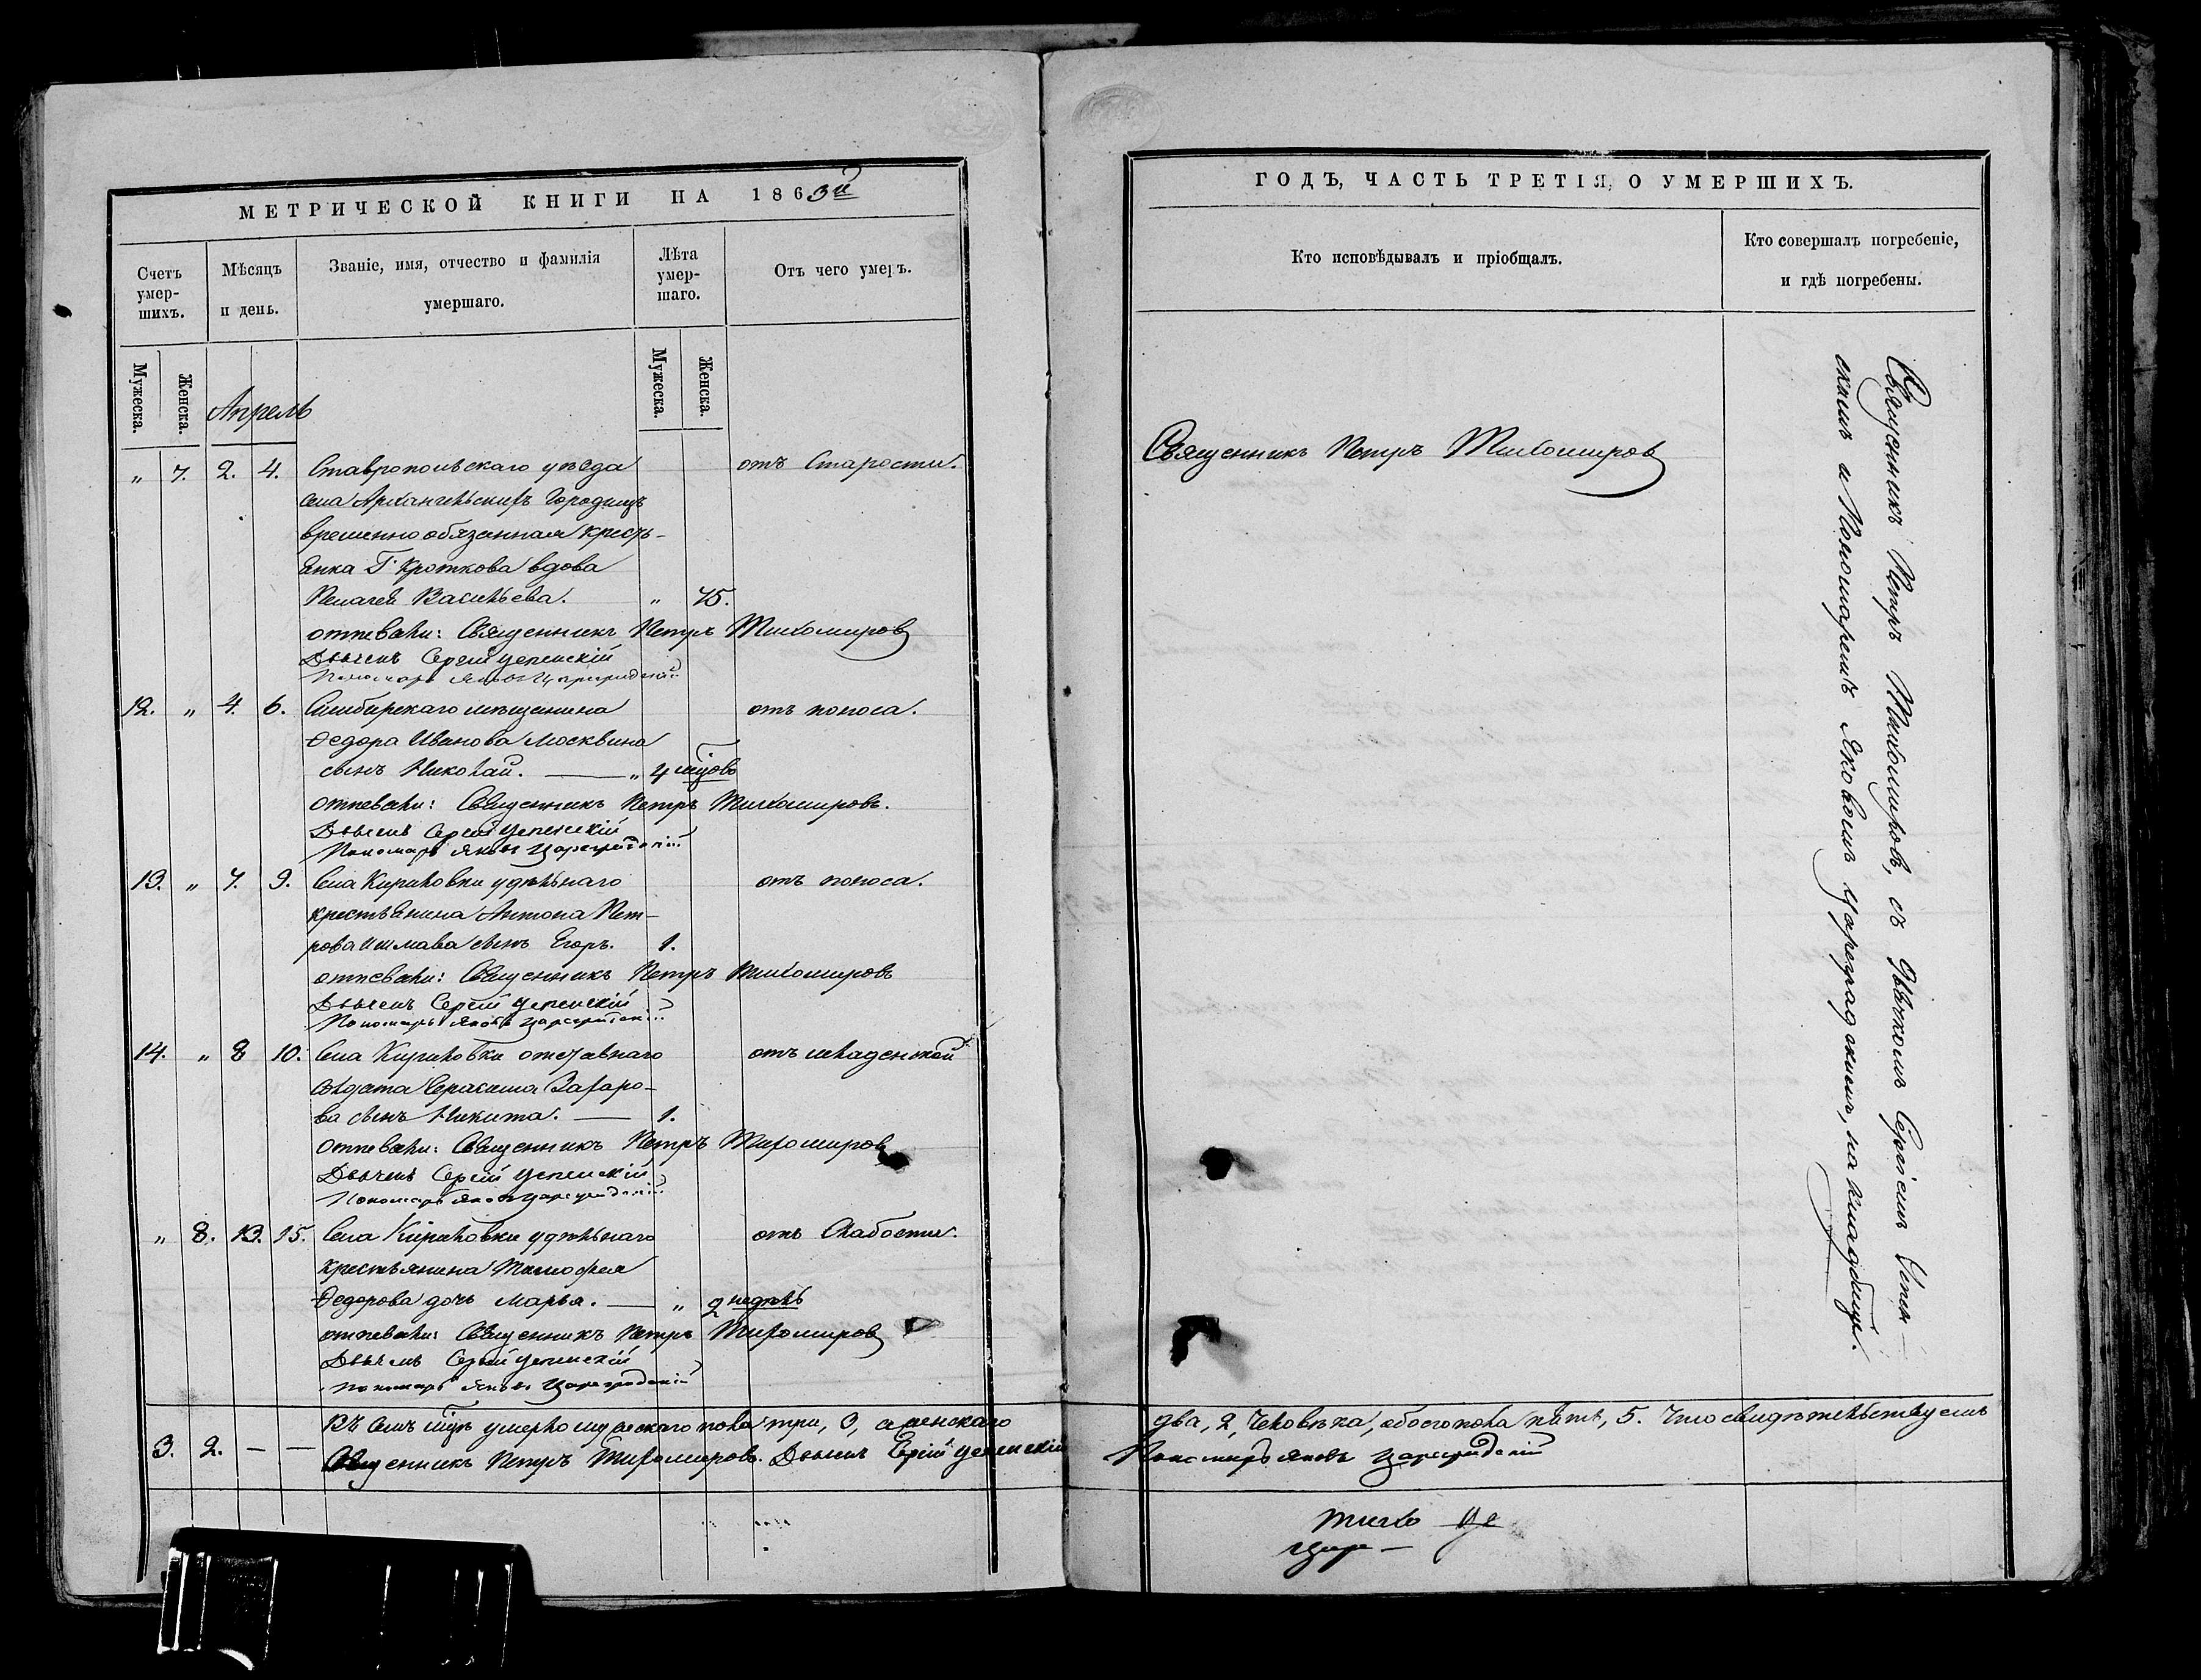 МЕТРИЧЕСКОЙ КНИГИ НА 1863й
Счетъ умер-шихъ.
Мѣсяцъ и день.
Званіе, имя, отчество и фамилія умершаго.
Лѣта умер-шаго.
Отъ чего умеръ.
Мужеска.
Женска.
Мужеска.
Женска.
Апрель
„ 7. 2. 4. Ставропольскаго уѣзда отъ Старости.
села Архангельскихъ Городищъ
временно обязанная кресть-
янка Г. Кроткова вдова
Пелагея Васильева. „ 75.
отпевали: Священникъ Петръ Тихомировъ
Дьячекъ Сергій Успенскій
Пономарь Яковъ Цареградскій
12. „ 4. 6. Симбирскаго мѣщанина отъ поноса.
Федора Иванова Москвина
сынъ Николай. — „ 4 мцовъ
отпевали: Священникъ Петръ Тихомировъ.
Дьячекъ Сергій Успенскій
Пономарь Яковъ Цареградскій
13. „ 7. 9. Села Кириловки удѣльнаго отъ поноса.
крестьянина Антона Пет-
рова сынъ Егоръ. 1.
отпевали: Священникъ Петръ Тихомировъ
Дьячекъ Сергій Успенскій
Пономарь Яковъ Цареградскій
14. „ 8 10. Села Кириловки отставнаго отъ младенской
солдата Герасима Захаро-
ва сынъ Никита. — 1.
отпевали: Священникъ Петръ Тихомировъ
Дьячекъ Сергій Успенскій
Пономарь Яковъ Цареградскій
„ 8. 13. 15. Села Кириловки удѣльнаго отъ Слабости.
крестьянина Тимофея
Федорова дочь Марья. — „ 2 недѣль
отпевали: Священникъ Петръ Тихомировъ
Дьячекъ Сергій Успенскій
Пономарь Яковъ Цареградскій
Въ семъ мцѣ умерло мужескаго пола три, 3, а женскаго
3. 2. — — Священникъ Петръ Тихомировъ. Дьячекъ Сергій Успенскій
ГОДЪ, ЧАСТЬ ТРЕТІЯ, О УМЕРШИХЪ.
Кто исповѣдывалъ и пріобщалъ.
Кто совершалъ погребеніе,
и гдѣ погребены.
Священникъ Петръ Тихомировъ
Священникъ Петръ Тихомировъ, съ Дьячкомъ Сергіемъ Успен-
скимъ и Пономаремъ Яковомъ Цареградскимъ, на кладбище.
два, 2, человѣка, обоего пола пять, 5. Что свидѣтельствуемъ
Пономарь Яковъ Цареградскій
Тихо Ус
Цар —